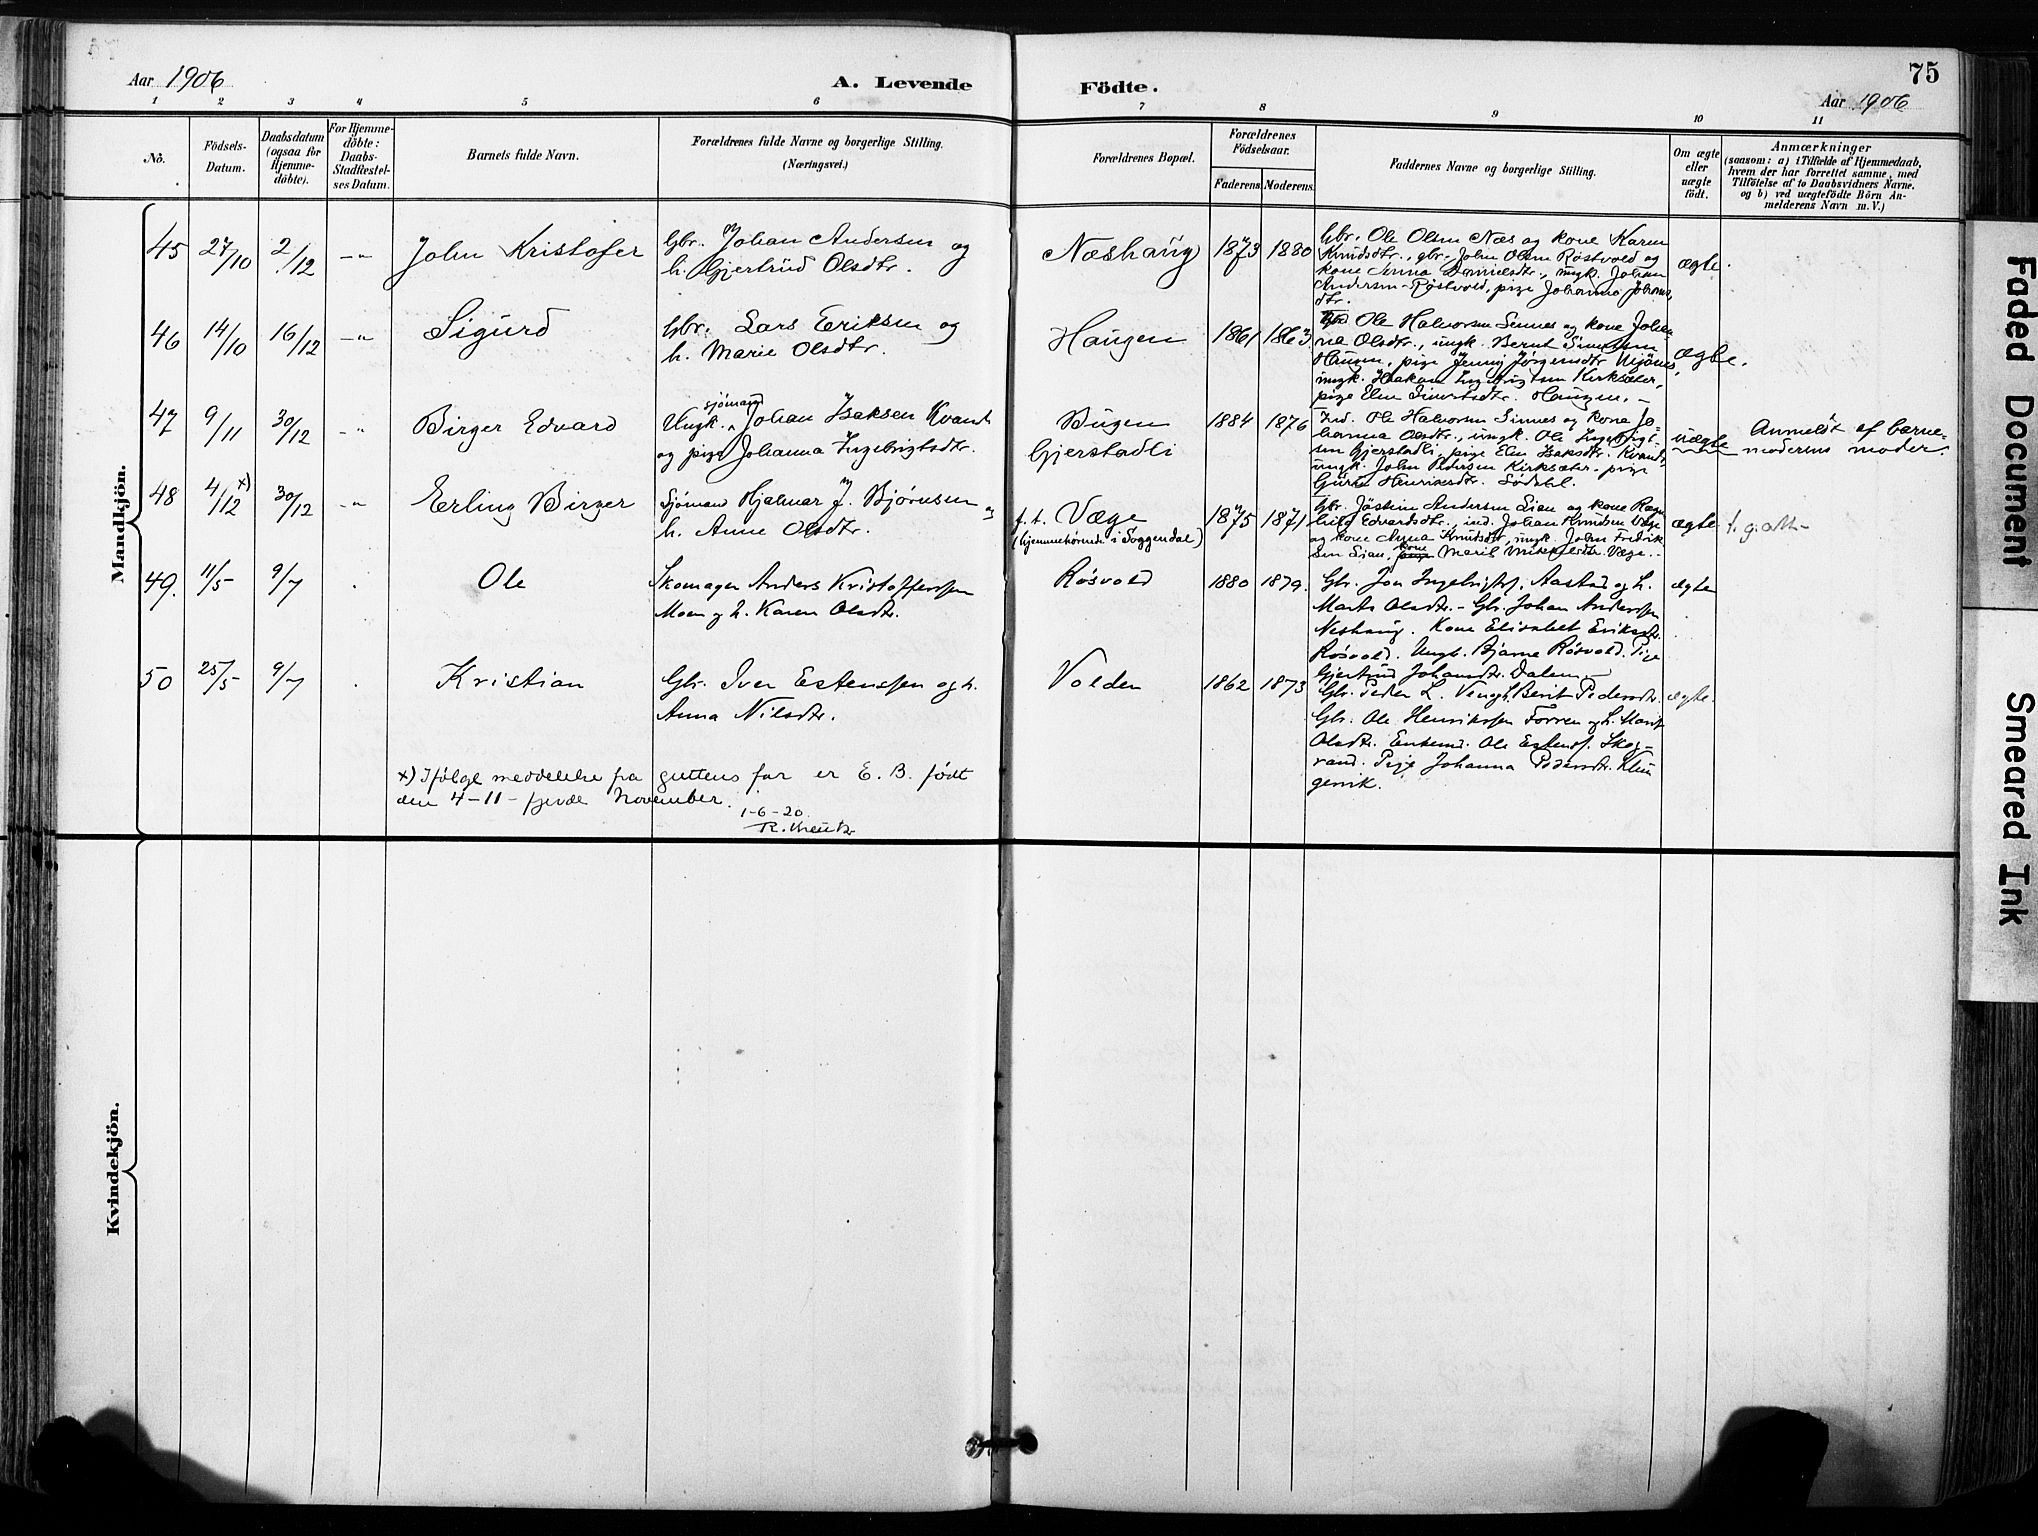 75
Aar 1906
A. Levende Födte.
Aar 1906
1 2 3 4 5 6 7 8 9 10 11
No.
Födsels-Datum.
Daabsdatum (ogsaa for Hjemme-döbte).
For Hjemme-döbte: Daabs-Stadfæstel-ses Datum.
Barnets fulde Navn.
Forældrenes fulde Navne og borgerlige Stilling. (Næringsvei.)
Forældrenes Bopæl.
Forældrenes Födselsaar.
Faderens. Moderens.
Faddernes Navne og borgerlige Stilling.
Om ægte eller uægte födt.
Anmærkninger
(saasom: a) i Tilfælde af Hjemmedaab,
hvem der har forrettet samme, med
Tilföielse af to Daabsvidners Navne.
og b) ved uægtefödte Börn An-
melderens Navn m. V.)
Mandkjön.
45 27/10 2/12 -"- John Kristofer
Gbr. Johan Andersen og
h. Gjertrud Olsdtr.
Næshaug 1873 1880
Gbr. Ole Olsen Næs og kone Karen
Knudsdtr., gbr. John Olsen Röstvold og
kone Anna Danielsdtr., ungk. Johan
Andersen Röstvold, pige Johanna Johans
dtr.
ægte.
46 14/10 16/12 -"- Sigurd
Gbr. Lars Eriksen og
h. Marie Olsdtr.
Haugen 1861 1863
Ole Halvorsen Sinnes og kone Johan
na Olsdtr., ungk. Bernt Simonsen
Haugen, pige Jenny Jørgensdtr
ungk. Haakon Ingebrigtsen Kirksæter,
pige Elen Haugen. -
ægte.
47 9/11 30/12 -"- Birger Edvard
sjömand
Ungk. Johan Isaksen Kvand
og pige Johanna Ingebrigtsdtr.
Bugen
Gjerstadli
1884 1876
Ind. Ole Halvorsen Sinnes og kone Jo-
hanna Olsdtr., ungk. Ole Ingebrigt-
sen Gjerstadli, pige Elen Isaksdtr. Kvand,
ungk. John Pedersen Kirksæter, pige
Guru Henriksdtr. Södahl.
uægte
Anmeldt af barne-
moderens moder.
48 4/12 x) 30/12 -"- Erling Birger
Sjömand Hjalmar J. Bjørnsen og
h. Anne Olsdtr.
f. t. Væge
(hjemmehørende i Soggendal)
1875 1871
Gbr. Jöstein Andersen Lian og kone Ragn
hild Edvardsdtr., ind. Johan Knudsen Væge
og kone Anna Knutsdtr, ungk. John Fredrik
sen Lian, kone Marit Mikkelsdtr. Væge. -
ægte
49. 11/5 9/7 Ole
Skomager Anders Kristofferssen
Moen og h. Karen Olsdtr.
Røsvold 1880 1879.
Gbr. Jon Ingebrigts. Aastad og h.
Marta Olsdtr. - Gbr. Johan Anderssen
Neshaug. Kone Elisabet Eriksdtr.
Røsvold. Ungk. Bjarne Røsvold. Pige
Gjertrud Johansdtr. Dalen -
ægte
50 25/5 9/7 Kristian
Gbr. Iver Estenssen og h.
Anna Nilsdtr.
Volden 1862 1873
Gbr. Peder L. Berit Pedersdtr.
Gbr. Ole Henrikssen Forren og h. Marit
Olsdtr. Enkem. Ole Estens. Skog-
rand. Pige Johanna Pedersdtr. Klin
genvik.
ægte.
x) Ifølge meddelelse fra guttens far er E. B. født
den 4-11- fjerde November.
1-6-20
Kvindekjön.
Faded Document
Smeared Ink